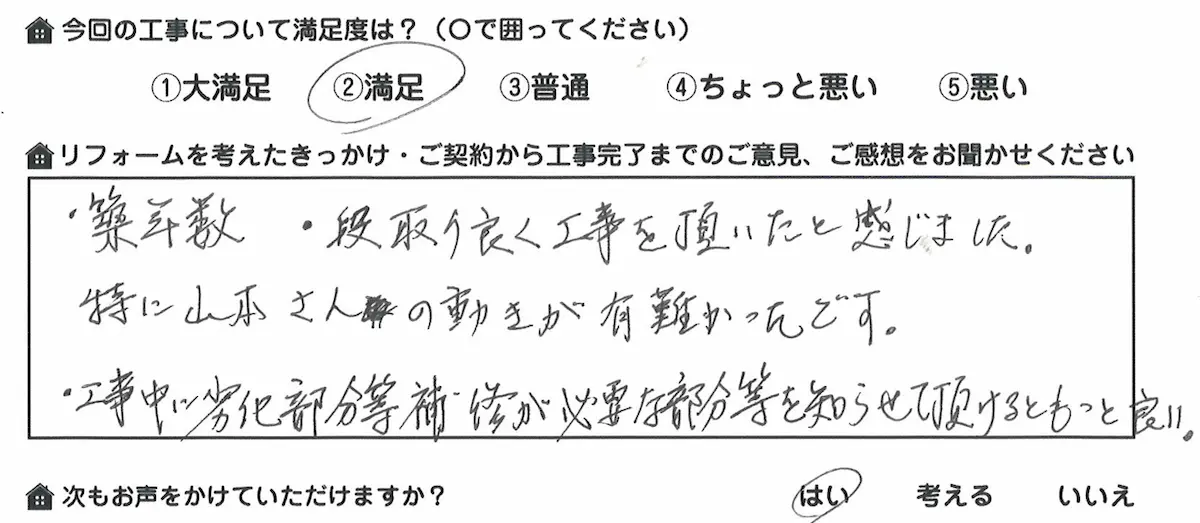 今回の工事について満足度は？（〇で囲ってください）
①大満足 ②満足 ③普通 ④ちょっと悪い ⑤悪い
リフォームを考えたきっかけ・ご契約から工事完了までのご意見、ご感想をお聞かせください
・築年数 ・段取り良く工事を頂いたと感じました。
特に山本さんの動きが有難かったです。
・工事中に劣化部分等補修が必要な部分等を知らせて頂けるともっと良い。
次もお声をかけていただけますか？ はい 考える いいえ